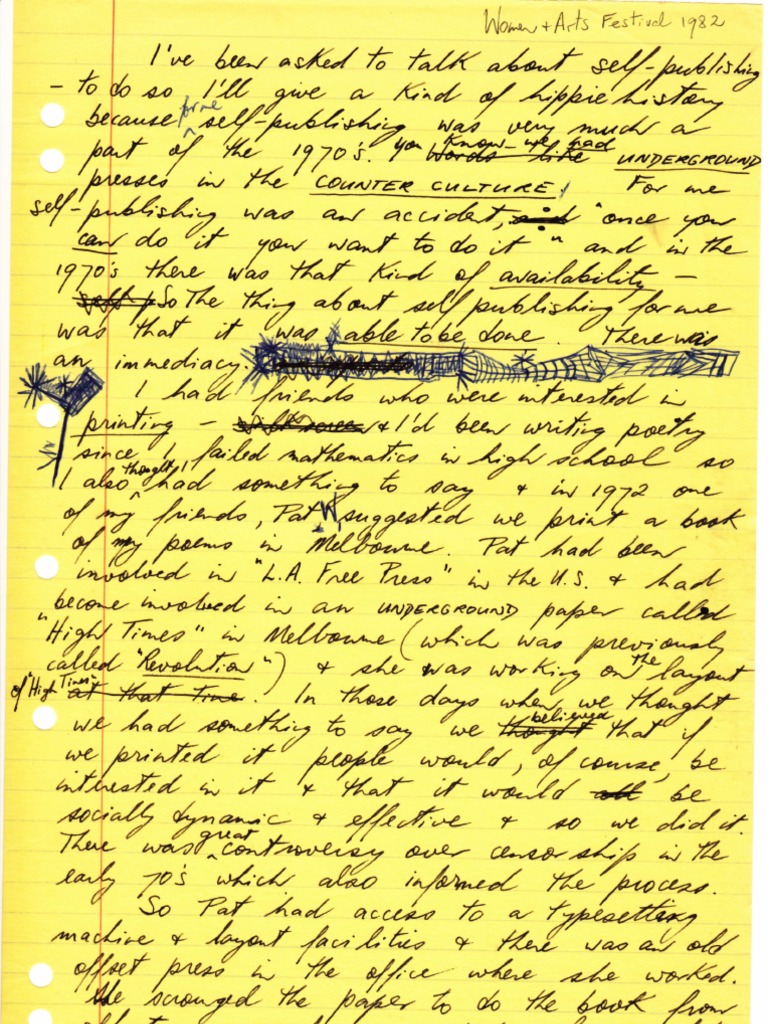 Women + Arts Festival 1982
I've been asked to talk about self-publishing
- to do so I'll give a kind of hippie history
because for me self-publishing was very much a
part of the 1970's. you know - we had Words like UNDERGROUND
presses in the COUNTER CULTURE. For me
self-publishing was an accident, "once you
can do it you want to do it" and in the
1970's there was that kind of availability -
So The thing about self publishing for me
was that it was able to be done. There was
an immediacy.
I had friends who were interested in
printing - & I'd been writing poetry
since I failed mathematics in high school so
I also thought I had something to say & in 1972 one
of my friends, Pat W, suggested we print a book
of my poems in Melbourne. Pat had been
involved in "L.A. Free Press" in the U.S. & had
become involved in an UNDERGROUND paper called
"High Times" in Melbourne (which was previously
called "Revolution") & she was working on the layout
of "High Times" at that time. In those days when we thought
we had something to say we thought believed that if
we printed it people would, of course, be
interested in it & that it would be
socially dynamic & effective & so we did it.
There was great controversy over censorship in the
early 70's which also informed the process.
So Pat had access to a typesetting
machine & layout facilities & there was an old
offset press in the office where she worked.
She scrounged the paper to do the book from